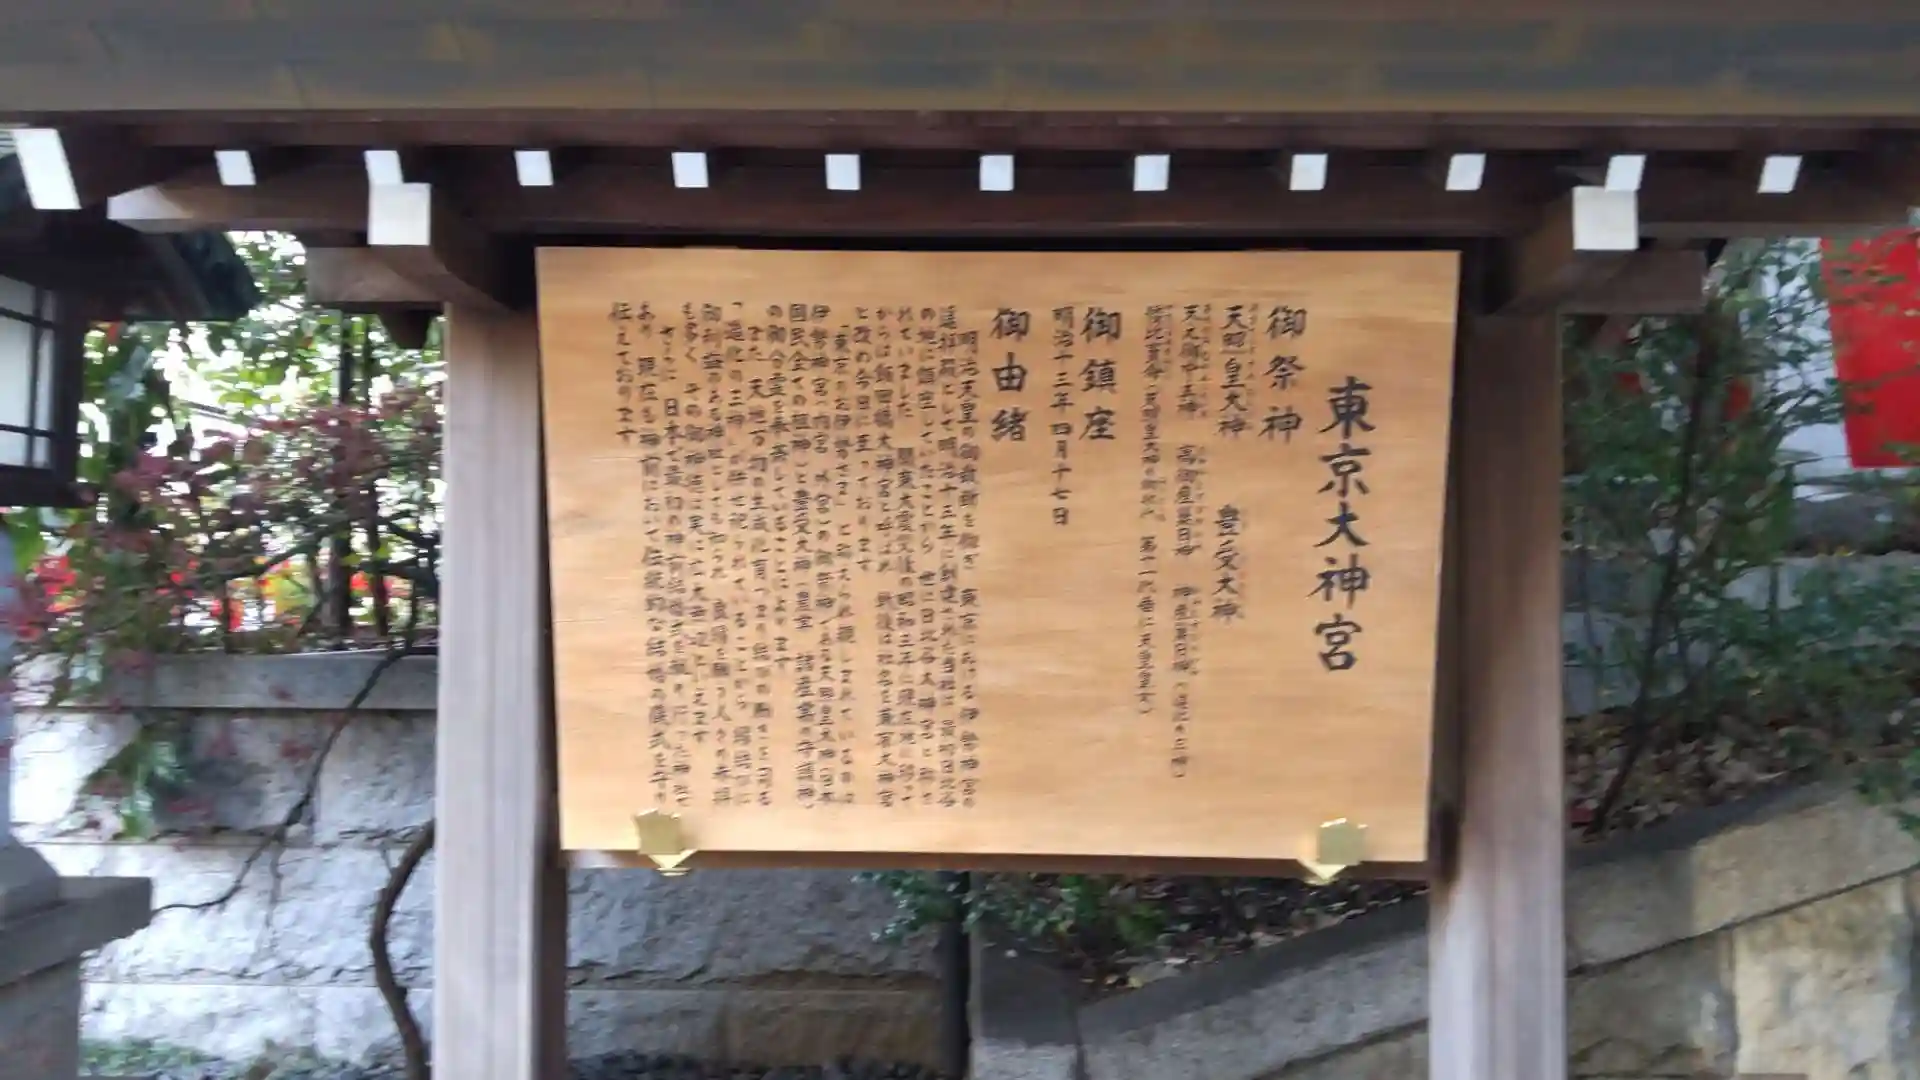 東京大神宮
御祭神
天照皇大神 豊受大神
天之御中主神 高御産巣日神 神産巣日神（造化の三神）
倭比賣命
御鎮座
明治十三年四月十七日
御由緒
明治天皇の御裁断を仰ぎ 東京における伊勢神宮の
遥拝殿として明治十三年に創建された当社は 最初日比谷
の地に鎮座していたことから 世に日比谷大神宮と称さ
れていました 関東大震災後の昭和三年に現在地に移って
からは飯田橋大神宮と呼ばれ 戦後は社名を東京大神宮
と改め今日に至っております
「東京のお伊勢さま」と称えられ親しまれているのは
伊勢神宮（内宮 外宮）の御祭神である天照皇大神（日本
国民全ての祖神）と豊受大神（農業 諸産業の守護神）
の御分霊を奉斎していることによります
また 天地万物の生成化育つまり結びの働きを司る
「造化の三神」が併せ祀られていることから 縁結びに
御利益のある神社としても知られ 良縁を願う人々の参拝
も多く その御神徳は実に広大無辺といえます
さらに 日本で最初の神前結婚式を執り行った神社で
あり 現在も神前において伝統的な結婚の儀式を守り
伝えております